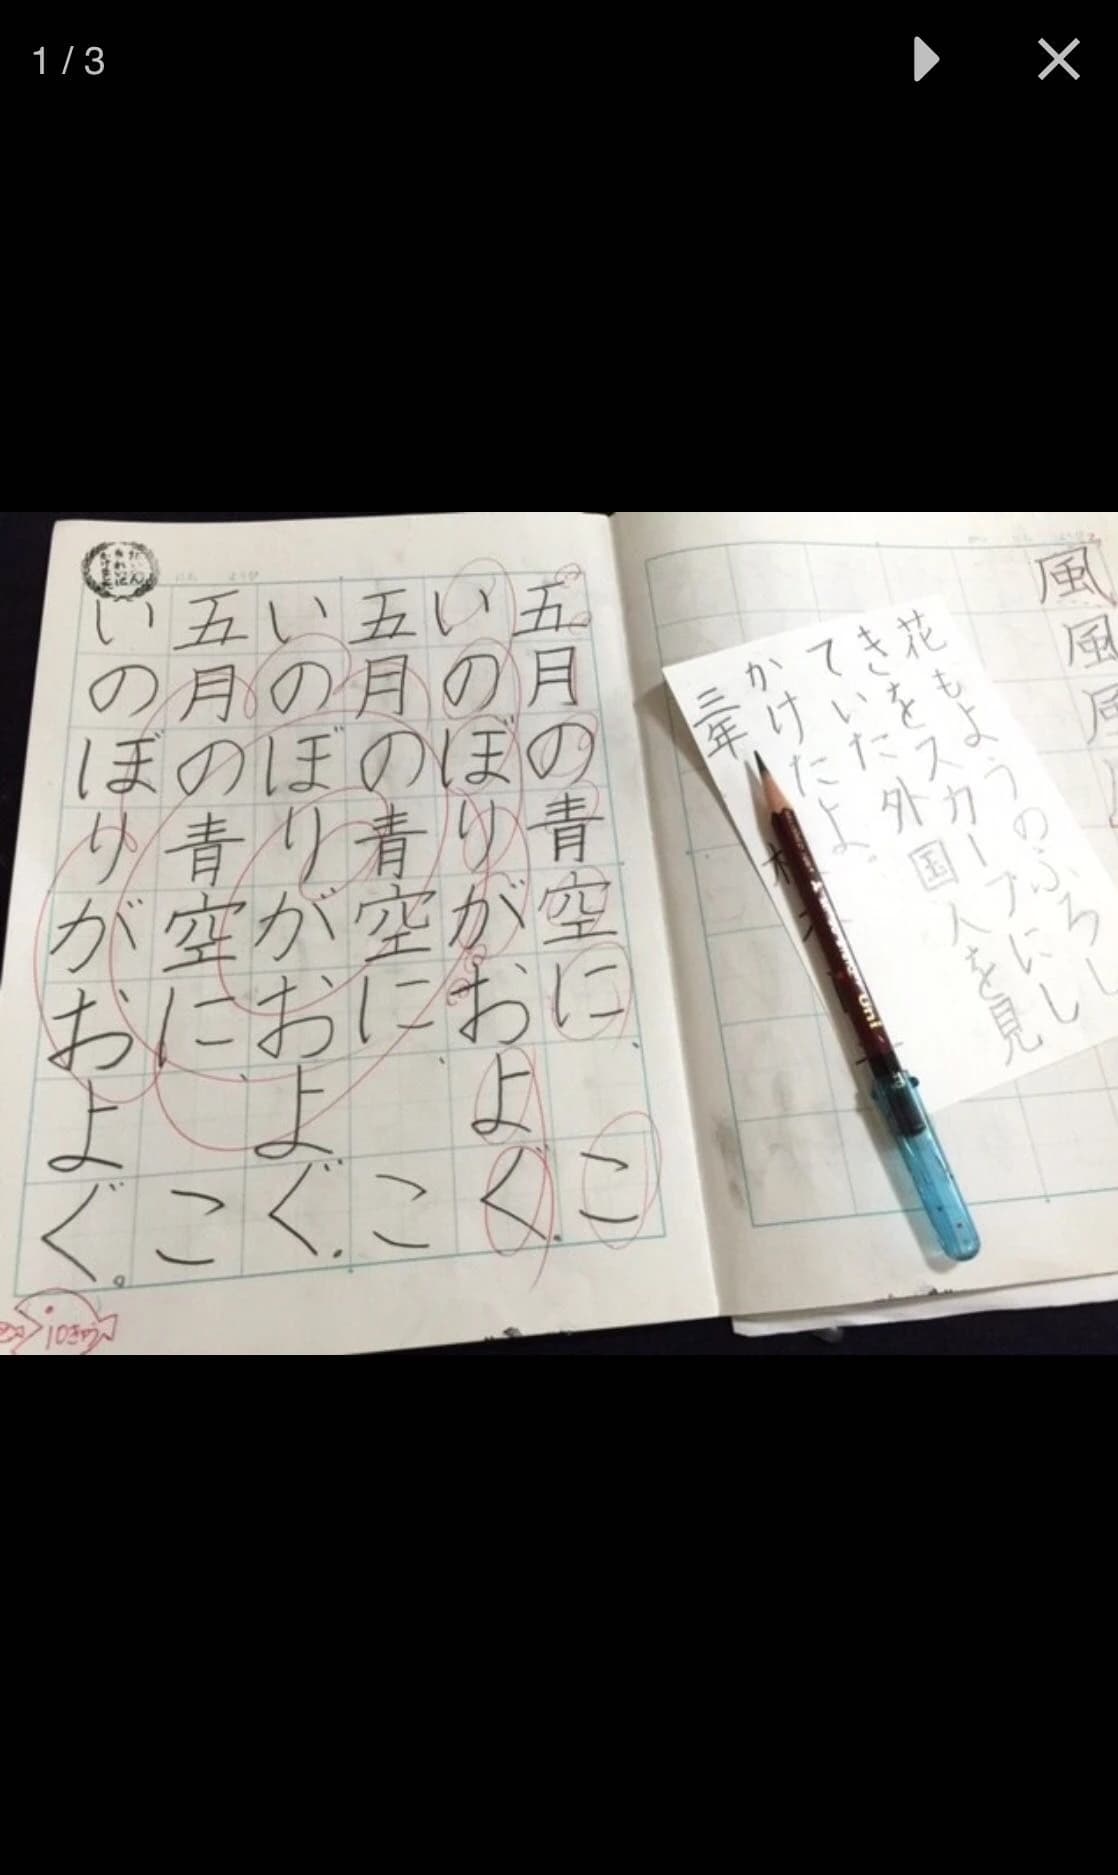 1 / 3
風風風
花もようのふろし
きをスカーフにし
ていた外国人を見
かけたよ。
三年
五月の青空に、こ
いのぼりがおよぐ。
五月の青空に、こ
いのぼりがおよぐ。
五月の青空に、こ
いのぼりがおよぐ。
たいへん
きれいに
かけました
10きゅう
uni